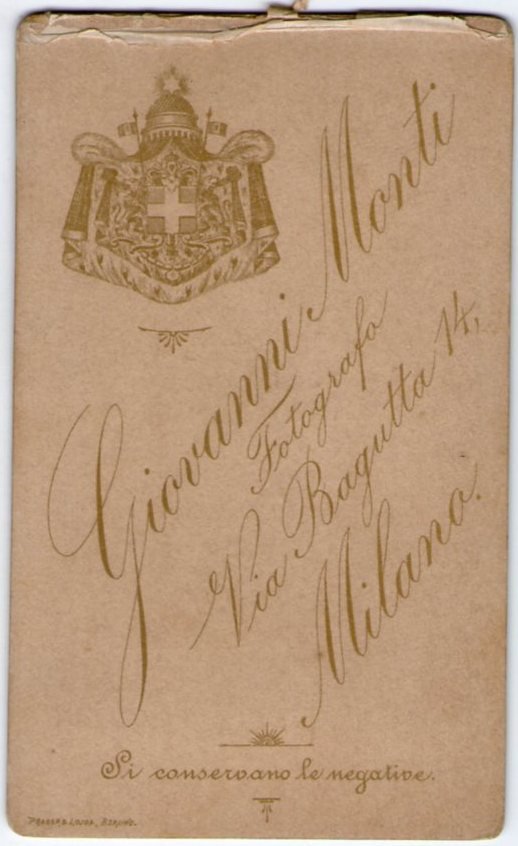 Giovanni Monti
Fotografo
Via Bagutta 14,
Milano.
Si conservano le negative.